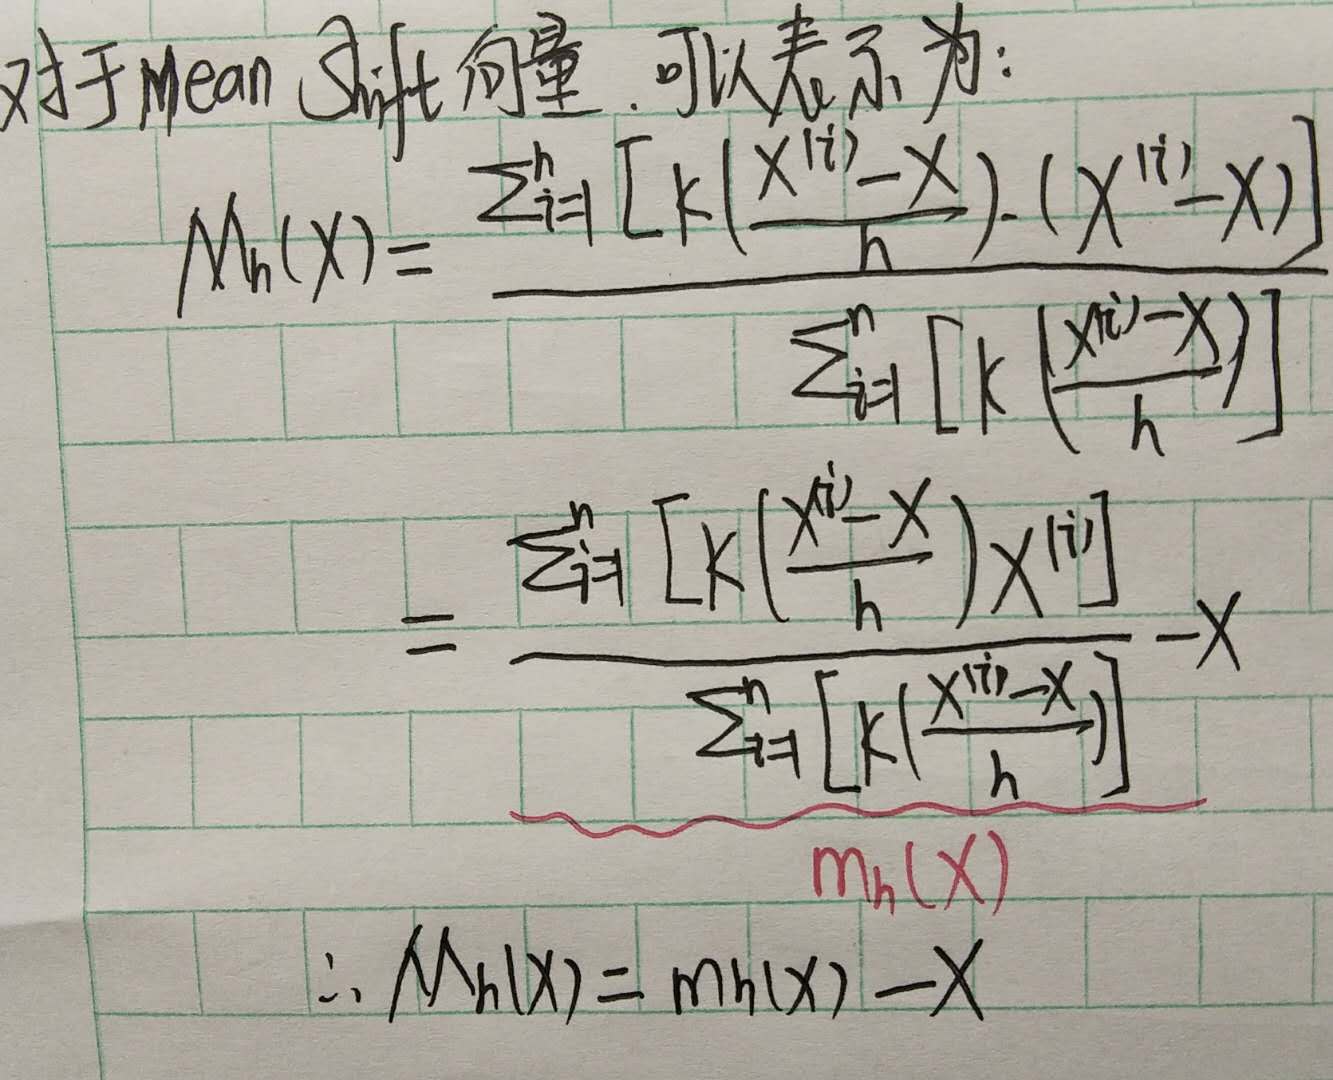 对于Mean Shift向量.可以表示为:
M_h(X) = \frac{\sum_{i=1}^{n} [K(\frac{X^{(i)}-X}{h})·(X^{(i)}-X)]}{\sum_{i=1}^{n} [K(\frac{X^{(i)}-X}{h})]}
= \frac{\sum_{i=1}^{n} [K(\frac{X^{(i)}-X}{h})X^{(i)}]}{\sum_{i=1}^{n} [K(\frac{X^{(i)}-X}{h})]} -X
m_h(X)
∴ M_h(X) = m_h(X) -X